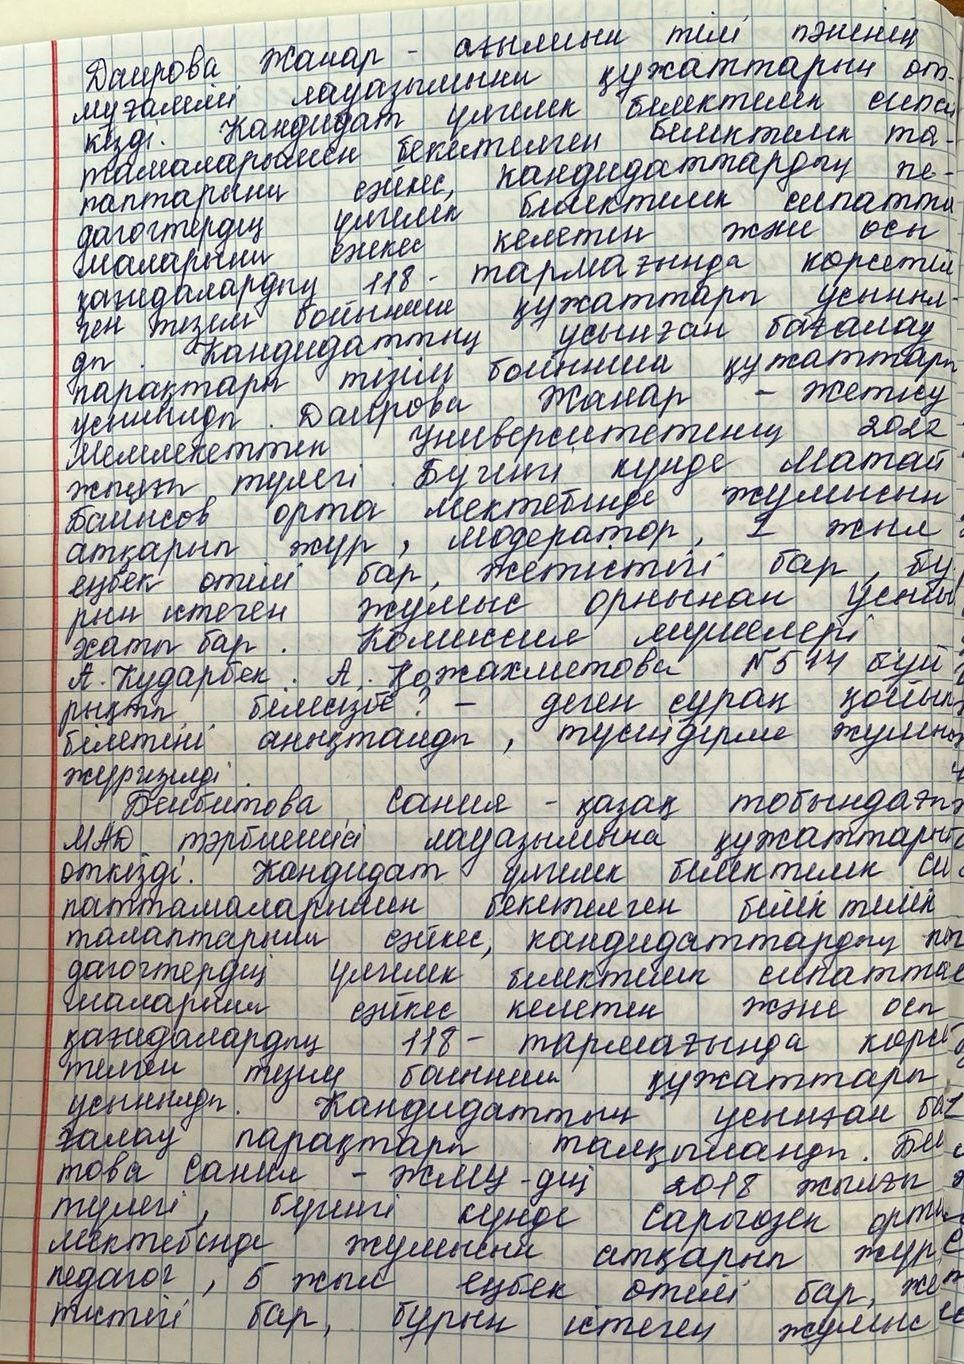 Даирова Жанар - ағылшын тілі пәнінің
мұғалімі лауазымына құжаттарын өт-
кізді. Кандидат үлгілік біліктілік сипат
тамаларымен бекітілген біліктілік та-
лаптарына сәйкес, кандидаттардың пе-
дагогтердің үлгілік біліктілік сипатта
маларына сәйкес келетін және осы
қағидалардың 118- тармағында көрсетіл
ген тізім бойынша құжаттары ұсыныл-
ды. Кандидаттың ұсынған бағалау
парақтары тізім бойынша құжаттары
ұсынылды. Даирова Жанар - Жетісу
Мемлекеттік Университетінің 2022
жылғы түлегі. Бүгінгі күнде Матай
Байысов орта мектебінде жұмысын
атқарып жүр, модератор, 1 жыл
еңбек өтілі бар, жетістігі бар, бұ
рын істеген жұмыс орнынан ұсыныс
хаты бар. Комиссия мүшелері
А. Құдарбек. А. Қожахметова №514 бұй
рықты білесізбе? - деген сұрақ қойып
білетіні анықталды, түсіндірме жұмыс
жүргізілді.
Бейбитова Сания - қазақ тобындағы
МАД тәрбиешісі лауазымына құжаттарын
өткізді. Кандидат үлгілік біліктілік си
паттамаларымен бекітілген біліктілік
талаптарына сәйкес, кандидаттардың пе
дагогтердің үлгілік біліктілік сипатта
маларына сәйкес келетін және осы
қағидалардың 118- тармағында көрсе
тілген тізім бойынша құжаттары
ұсынылды. Кандидаттың ұсынған ба
ғалау парақтары талқыланды. Бей
това Сания - ЖМУ-дің 2018 жылғы
түлегі, бүгінгі күнде Сарыөзек орта
мектебінде жұмысын атқарып жүр
педагог, 5 жыл еңбек өтілі бар, же
тістігі бар, бұрын істеген жұмыс